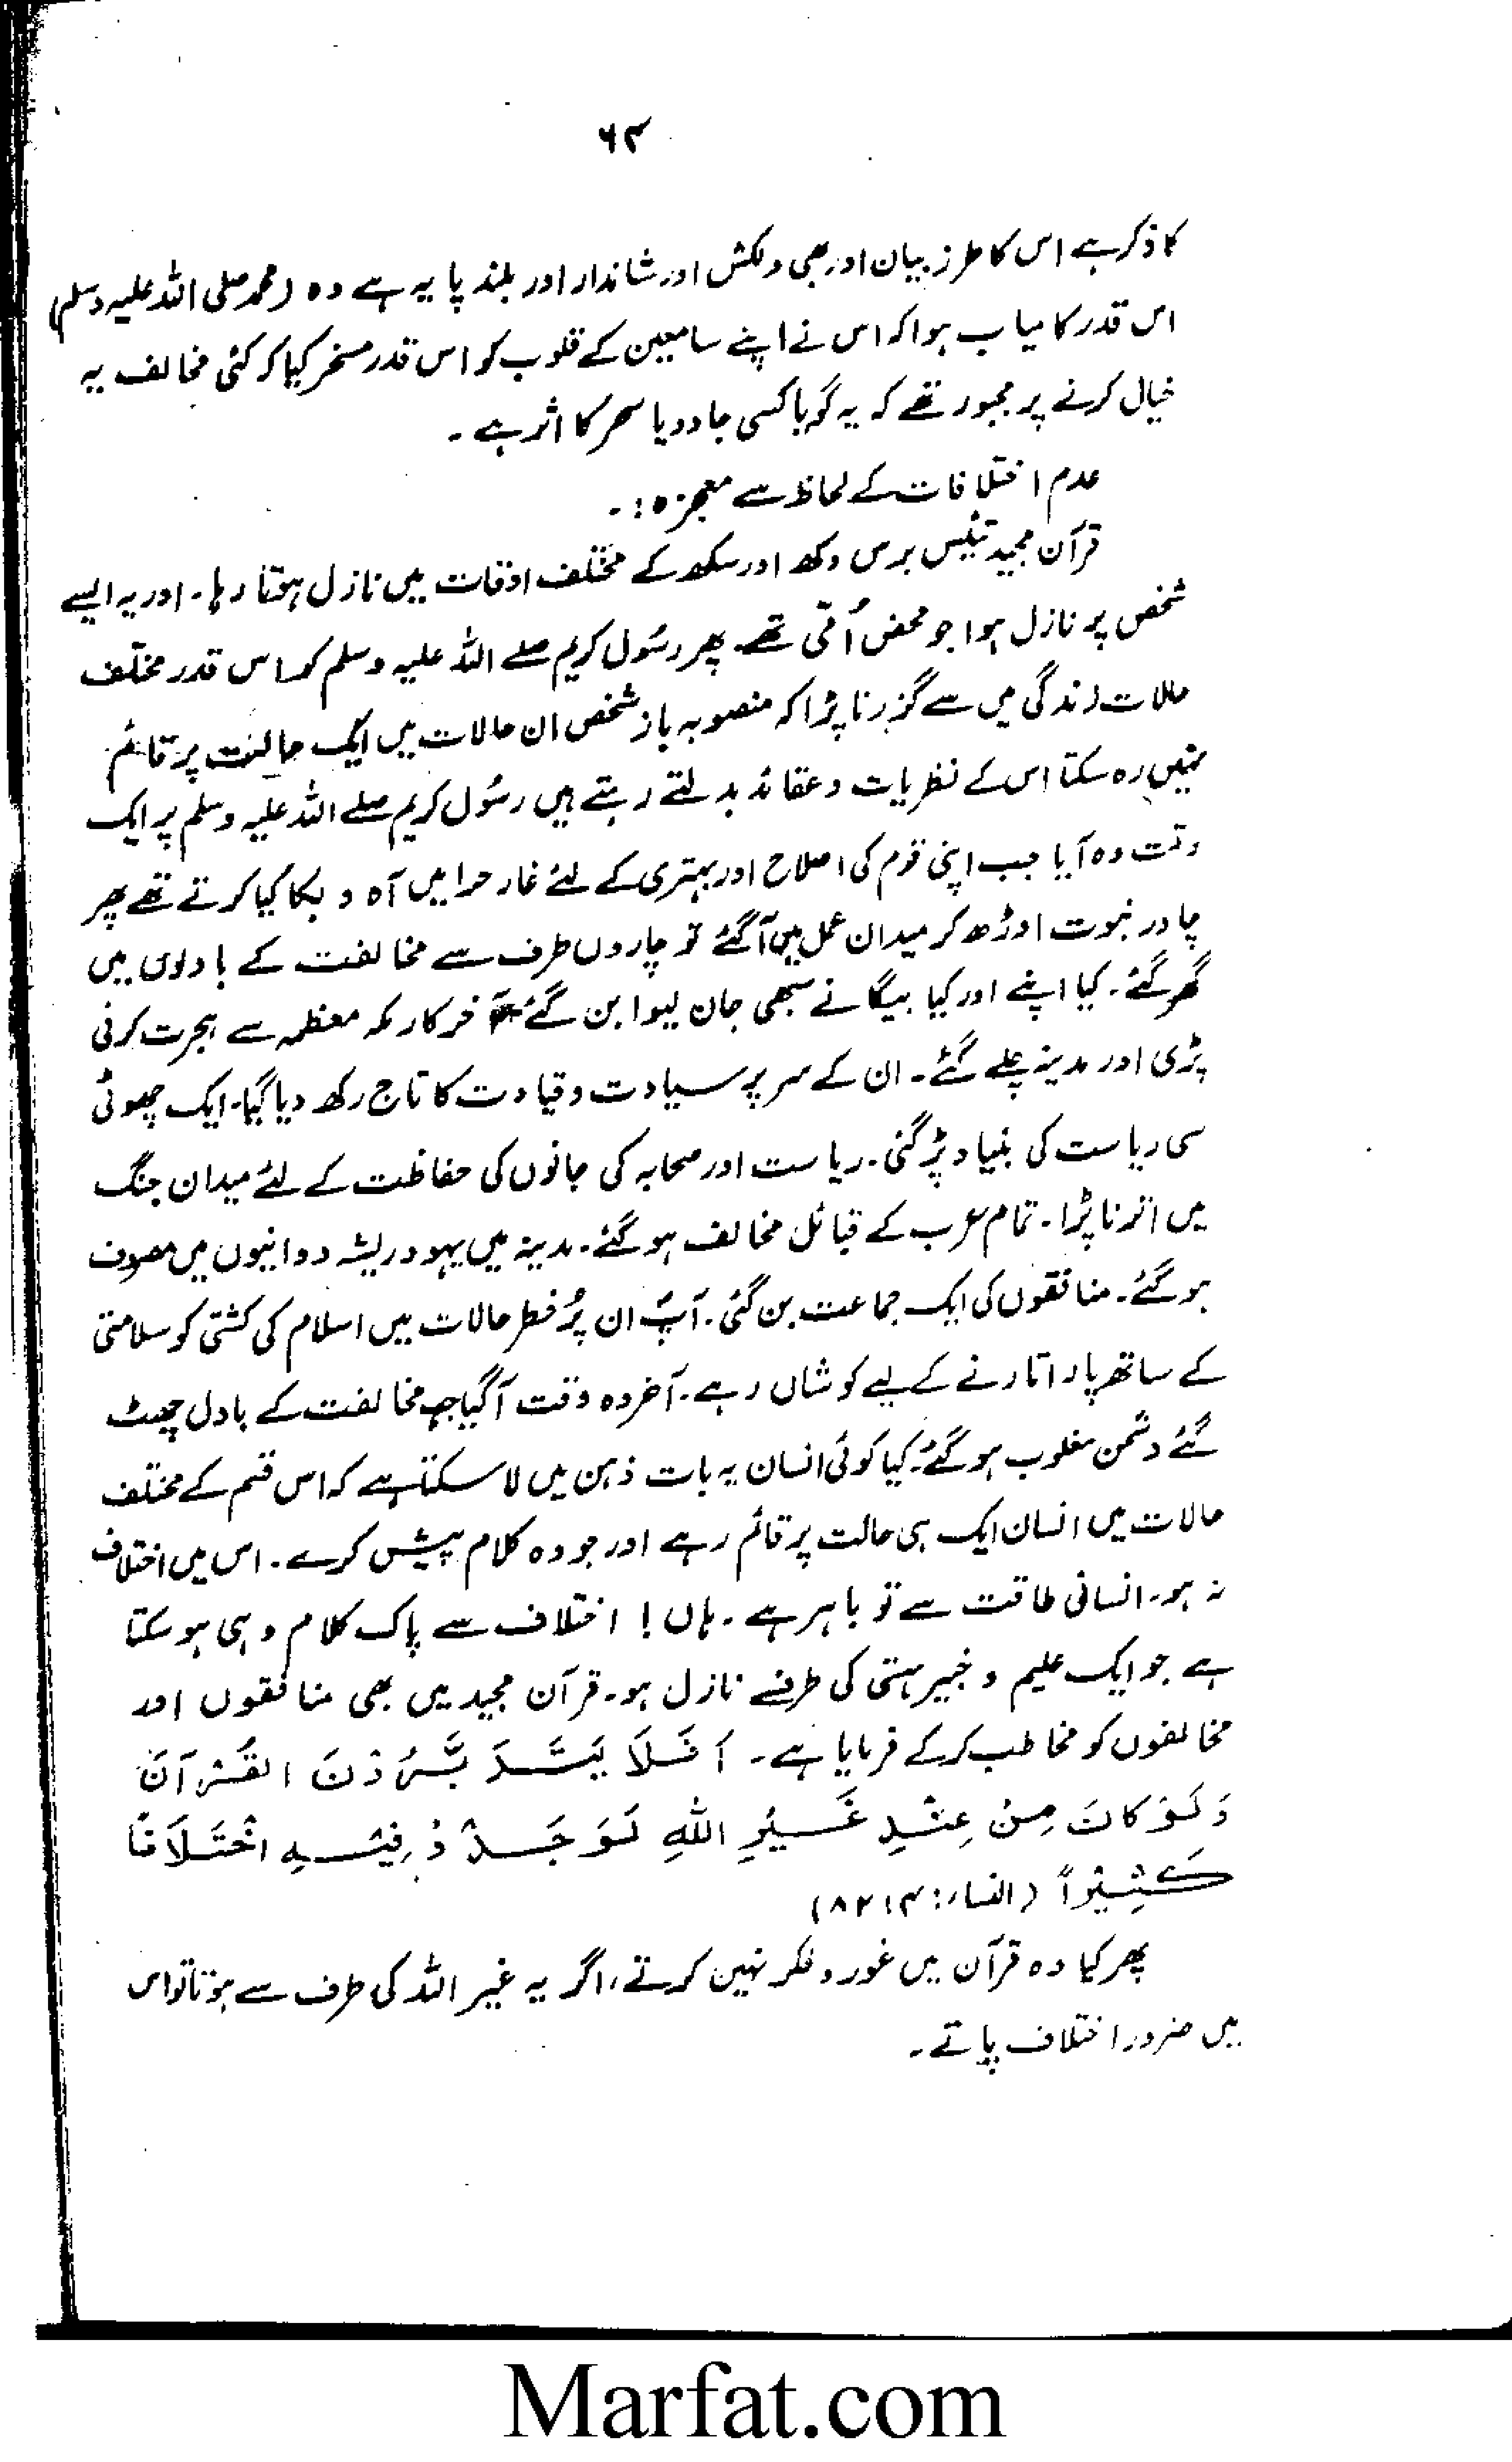 ۶۴
کا ذکر ہے اس کا طرز بیان اور بھی دلکش اور شاندار اور بلند پایہ ہے وہ (محمد صلی اللہ علیہ وسلم)
اس قدر کامیاب ہوا کہ اس نے اپنے سامعین کے قلوب کو اس قدر مسخر کیا کہ کئی مخالف یہ
خیال کرنے پر مجبور تھے کہ یہ گویا کسی جادو یا سحر کا اثر ہے ۔
عدم اختلافات کے لحاظ سے معجزہ :۔
قرآن مجید تیئس برس دکھ اور سکھ کے مختلف اوقات میں نازل ہوتا رہا۔ اور یہ ایسے
شخص پر نازل ہوا جو محض اُمّی تھے۔ پھر رسُول کریم صلے اللہ علیہ وسلم کو اس قدر مختلف
حالات زندگی میں سے گزرنا پڑا کہ منصوبہ باز شخص ان حالات میں ایک حالت پر قائم
نہیں رہ سکتا اس کے نظریات و عقائد بدلتے رہتے ہیں رسُول کریم صلے اللہ علیہ وسلم پر ایک
وقت وہ آیا جب اپنی قوم کی اصلاح اور بہتری کے لئے غار حرا میں آہ و بکا کیا کرتے تھے پھر
چادر نبوت اوڑھ کر میدان عمل میں آگئے تو چاروں طرف سے مخالفت کے بادلوں میں
گھر گئے۔ کیا اپنے اور کیا بیگانے سبھی جان لیوا بن گئے آخر کار مکہ معظمہ سے ہجرت کرنی
پڑی اور مدینہ چلے گئے۔ ان کے سر پر سیادت و قیادت کا تاج رکھ دیا گیا۔ ایک چھوٹی
سی ریاست کی بنیاد پڑ گئی۔ ریاست اور صحابہ کی جانوں کی حفاظت کے لئے میدان جنگ
میں اترنا پڑا۔ تمام عرب کے قبائل مخالف ہو گئے۔ مدینہ میں یہود ریشہ دوانیوں میں مصروف
ہو گئے۔ منافقوں کی ایک جماعت بن گئی۔ آپؐ ان پُر خطر حالات میں اسلام کی کشتی کو سلامتی
کے ساتھ پار اتارنے کے لیے کوشاں رہے۔ آخر وہ وقت آگیا جب مخالفت کے بادل چھٹ
گئے دشمن مغلوب ہو گئے۔ کیا کوئی انسان یہ بات ذہن میں لا سکتا ہے کہ اس قسم کے مختلف
حالات میں انسان ایک ہی حالت پر قائم رہے اور جو وہ کلام پیش کرے۔ اس میں اختلاف
نہ ہو۔ انسانی طاقت سے تو باہر ہے۔ ہاں! اختلاف سے پاک کلام وہی ہو سکتا
ہے جو ایک علیم و خبیر ہستی کی طرف سے نازل ہو۔ قرآن مجید میں بھی منافقوں اور
مخالفوں کو مخاطب کرکے فرمایا ہے۔ اَفَلَا يَتَدَبَّرُوْنَ القُرْآنَ
وَلَوْ كَانَ مِنْ عِنْدِ غَيْرِ اللهِ لَوَجَدُوْا فِيْهِ اخْتَلَافًا
كَثِيْرًا (النساء ۴: ۸۲)
پھر کیا وہ قرآن میں غور و فکر نہین کرتے، اگر یہ غیر اللہ کی طرف سے ہوتا تو اس
میں ضرور اختلاف پاتے۔
Marfat.com